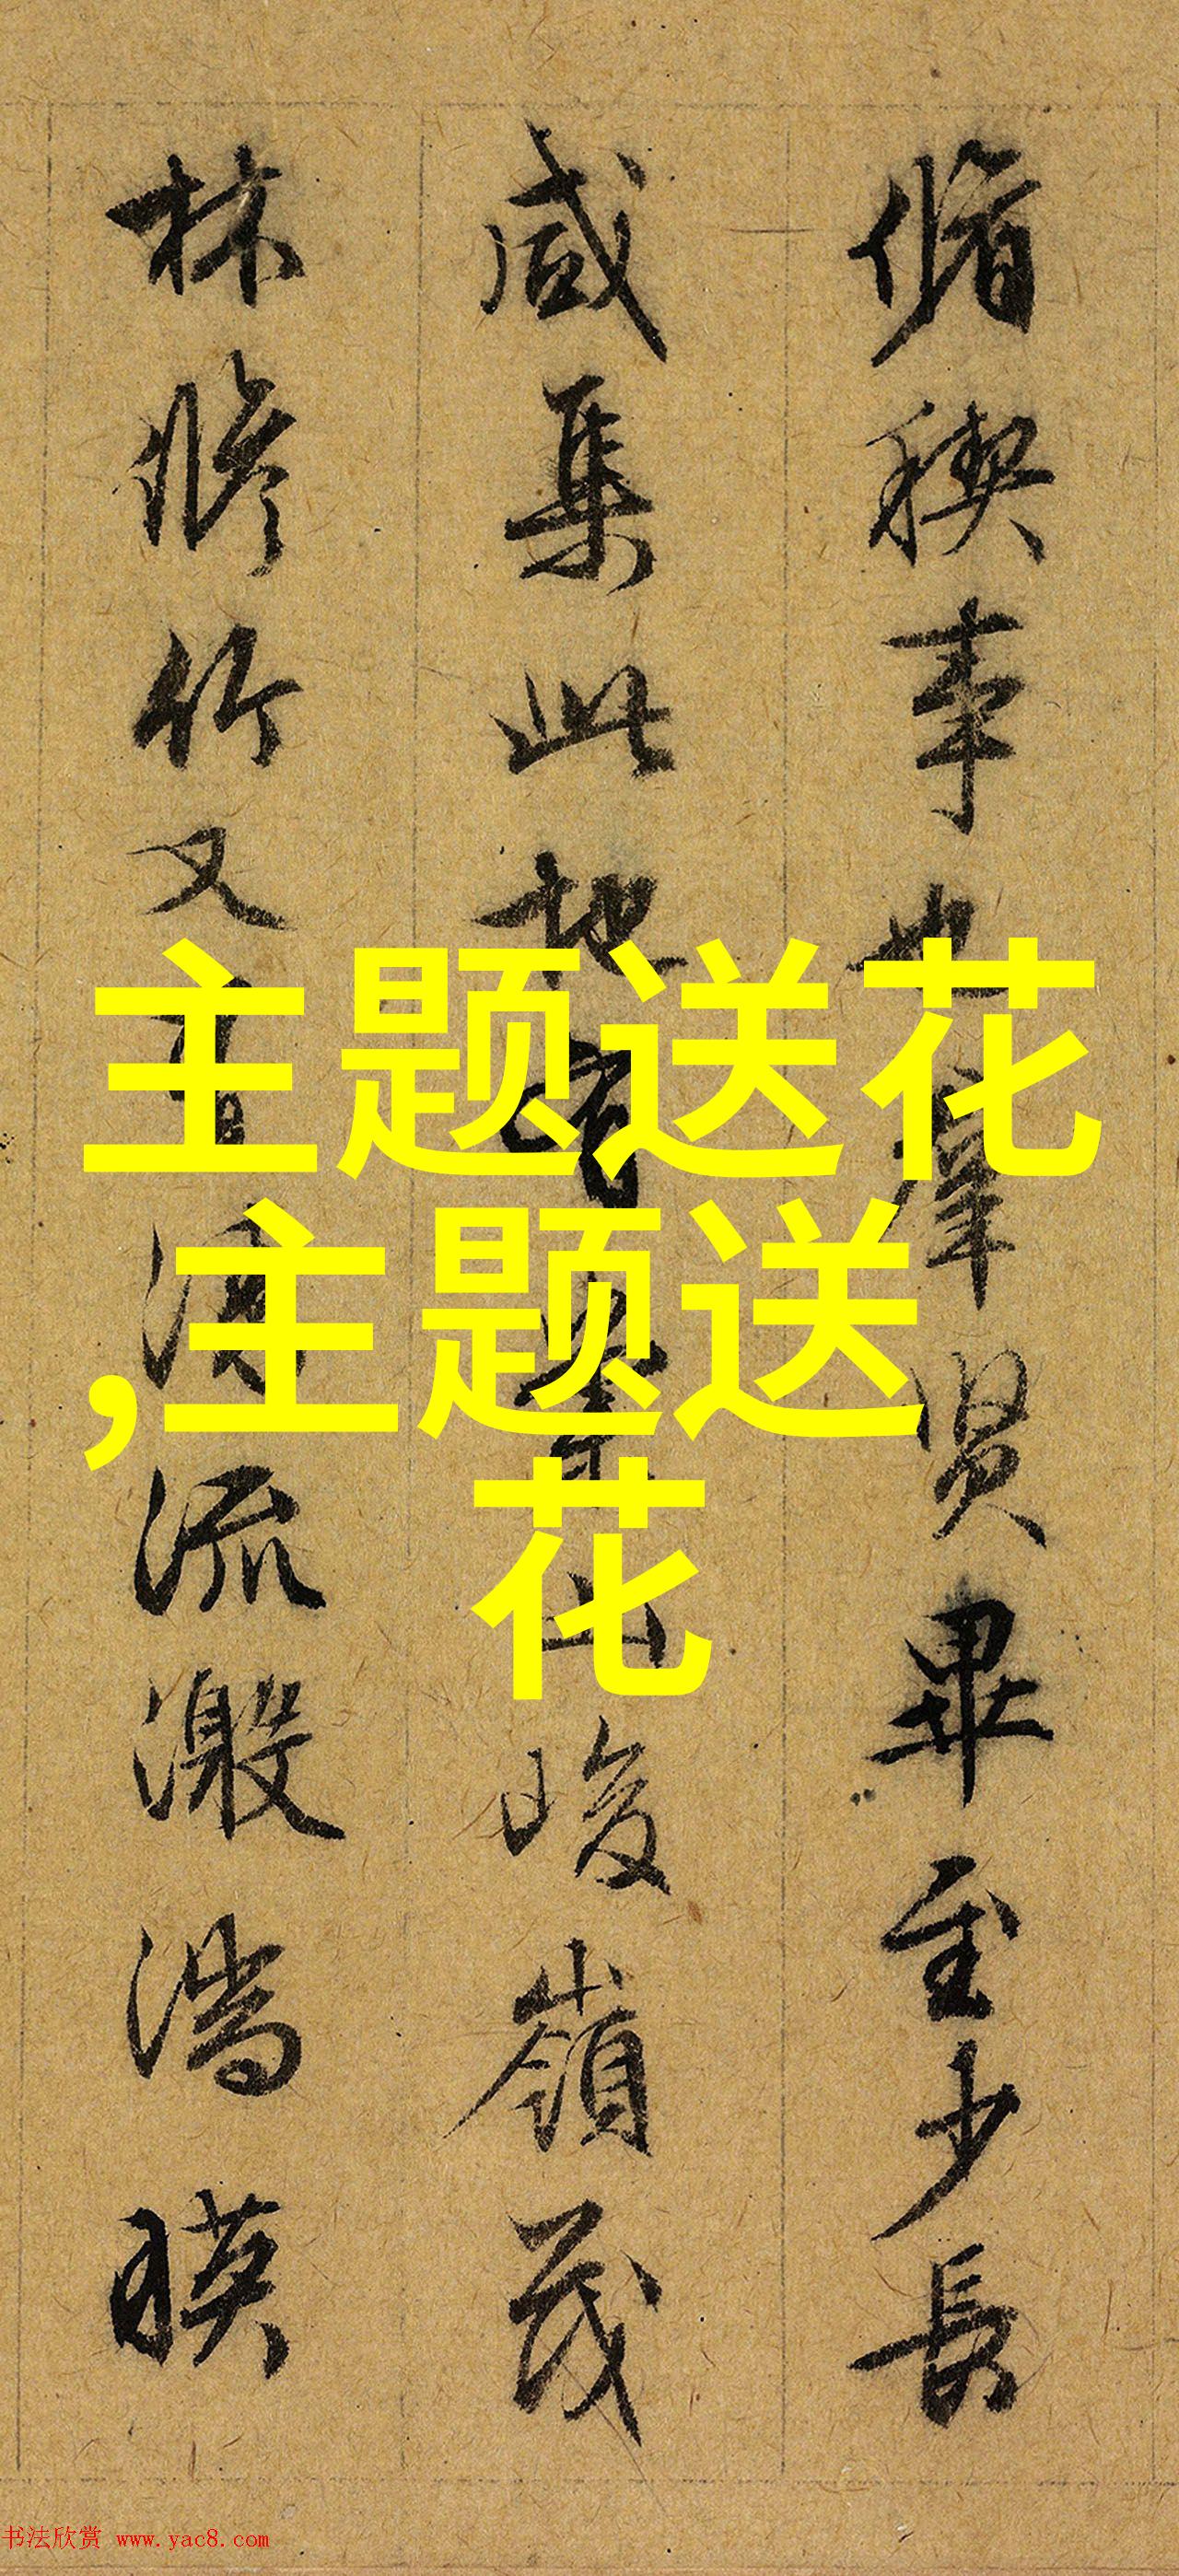 脩稧事也羣賢畢至少長
咸集此地有崇山峻嶺茂
林脩竹又有清流激湍暎
主题送花
,主题送
花
书法欣赏 www.yac8.com